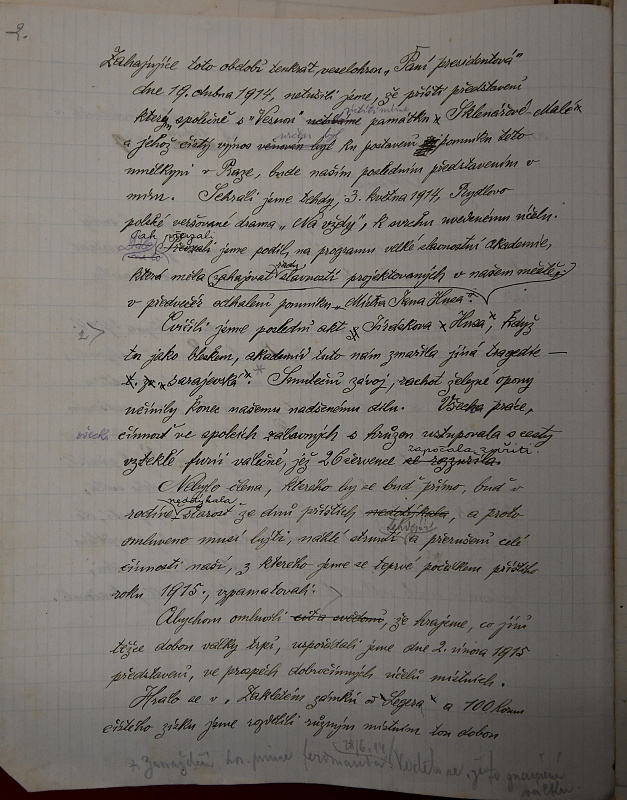 2.
Zahajujíce toto období tenkrát veselohrou „Paní presidentová"
dne 19. dubna 1914, netušili jsme, že příští představení
které společně s „Vesnou" památku Sklenářové-Malé
a jehož čistý výnos věnován byl ku postavení pomníku této
umělkyni v Praze, bude naším posledním představením v
míru. Sehráli jsme tehdy, 3. května 1914, Rydlovo
polské veršované drama „Na vždy", k svrchu uvedenému účelu.
Pak převzali
Převzali jsme podíl, na programu velké slavnostní akademie,
která měla zahajovat řadu slavností projektovaných v našem městě,
v předvečer odhalení pomníku „Mistra Jana Husa".
Cvičili jsme poslední akt Jiráskova „Husa", když
tu jako bleskem, akademii tuto nám zmařila jiná tragedie —
sarajevská". Smuteční závoj, rachot železné opony
učinily konec našemu nadšenému dílu. Všecka práce,
všecka
činnost ve spolcích zábavných s hrůzou ustupovala s cesty
započala zuřiti.
vzteklé furii válečné, jež 26 července se rozzuřila
Nebylo člena, kterého by se buď přímo, buď v
nedotýkala
rodině starost ze dnů příštích nedotýkala, a proto
omluveno musí býti, náhlé strnutí a přerušení celé
činnosti naší, z kterého jsme se teprve počátkem příštího
roku 1915, vzpamatovali.
Abychom omluvili, že hrajeme, co jiní
těžce dobou války trpí, uspořádali jsme dne 2. února 1915
představení, ve prospěch dobročinných účelů místních.
Hrálo se v „Zakletém zámku od Legra" a 100 Korun
čistého zisku jsme rozdělili různým místním tou dobou
28/6. 14